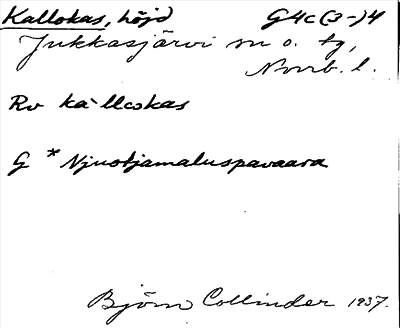 Kallokas, höjd G4c(3-)4
Jukkasjärvi sn o. tg,
Norrb. l.
Rv kalləkas
G * Njuotjamaluspavaara
Björn Collinder 1937.